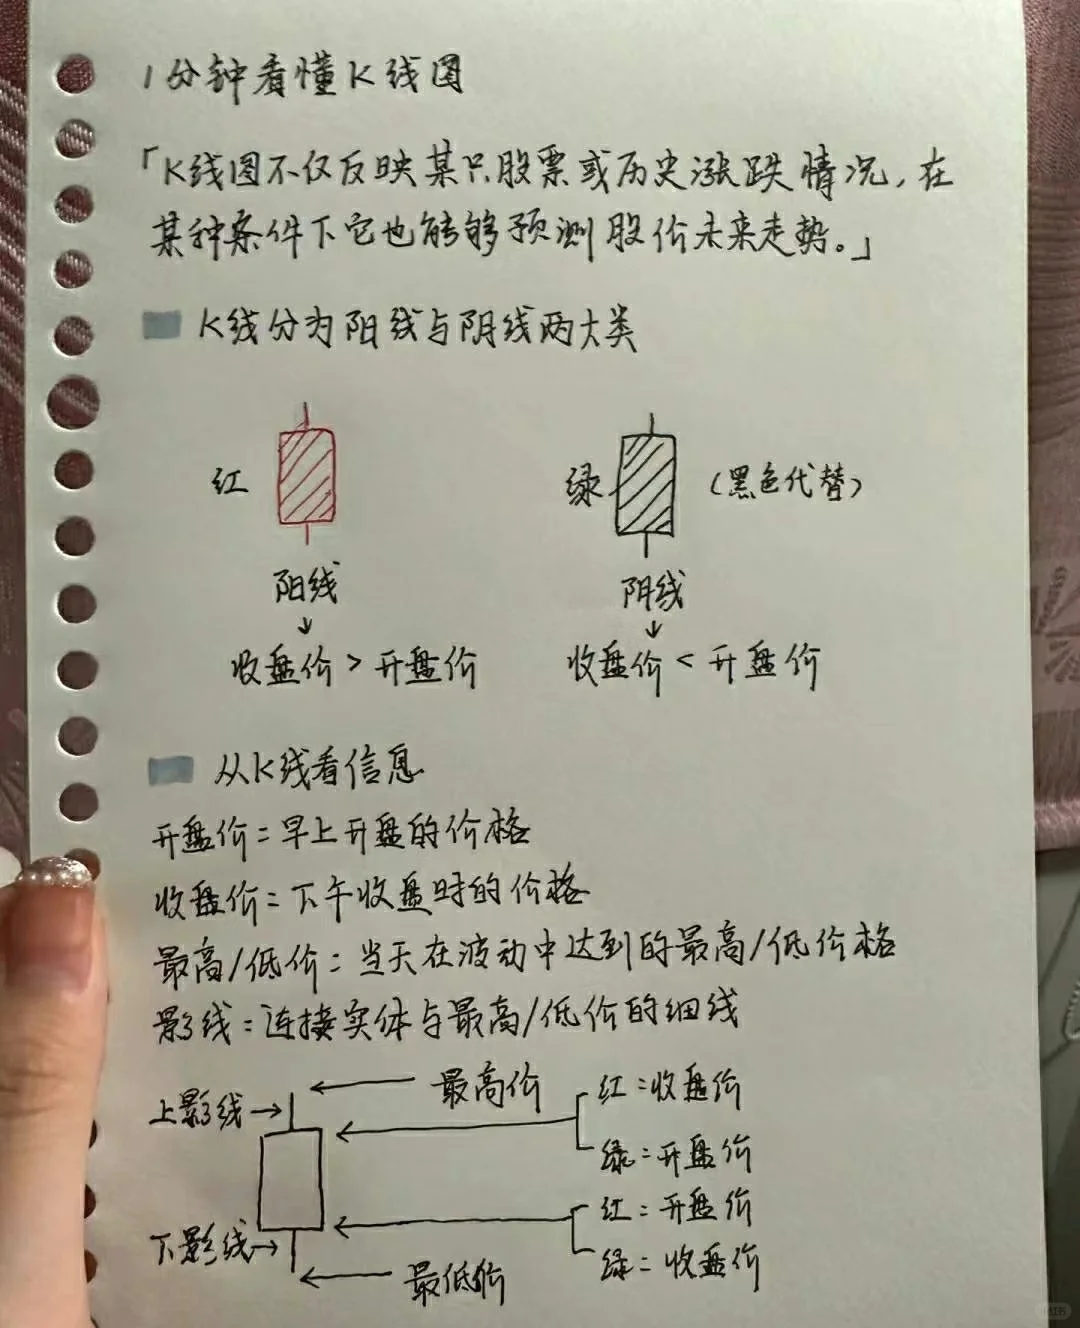 1分钟看懂K线图
「K线图不仅反映某只股票或历史涨跌情况,在
某种条件下它也能够预测股价未来走势。」
K线分为阳线与阴线两大类
红
绿
(黑色代替)
阳线
阴线
↓
↓
收盘价>开盘价
收盘价<开盘价
从K线看信息
开盘价=早上开盘的价格
收盘价=下午收盘时的价格
最高/低价=当天在波动中达到的最高/低价格
影线=连接实体与最高/低价的细线
上影线→
←最高价
红=收盘价
绿=开盘价
红=开盘价
下影线→
绿=收盘价
←最低价